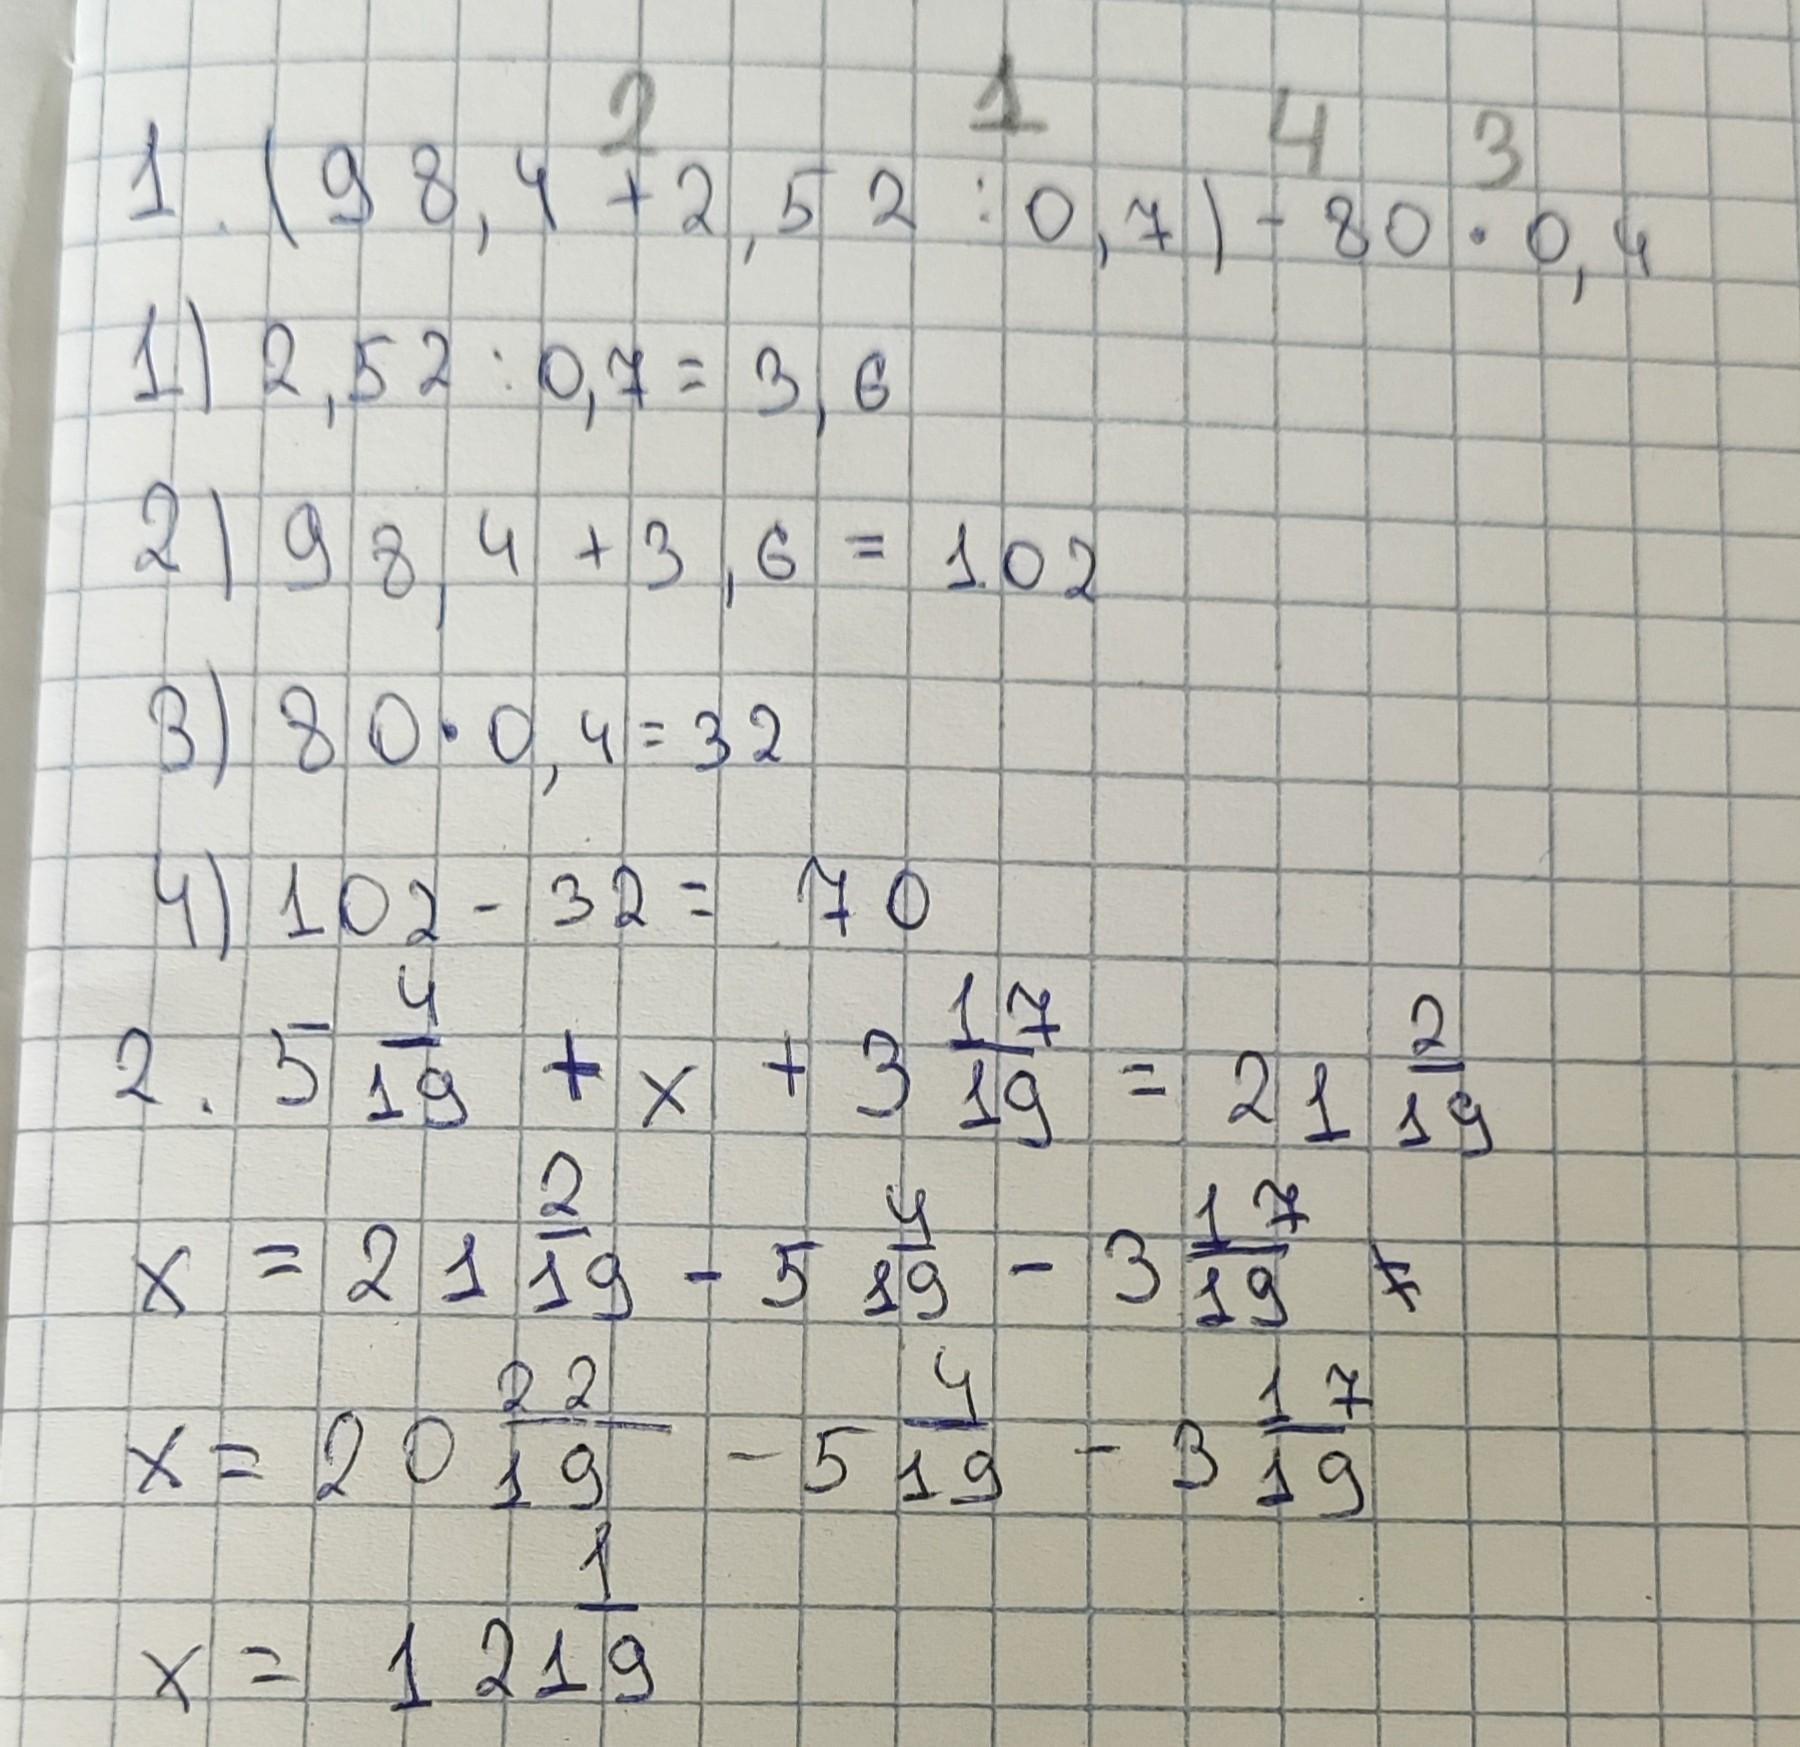 2 1 4 3
1. (98,4 + 2,52 : 0,7) - 80 · 0,4
1) 2,52 : 0,7 = 3,6
2) 98,4 + 3,6 = 102
3) 80 · 0,4 = 32
4) 102 - 32 = 70
2. 5 4/19 + x + 3 17/19 = 21 2/19
x = 21 2/19 - 5 4/19 - 3 17/19
x = 20 22/19 - 5 4/19 - 3 17/19
x = 12 1/19